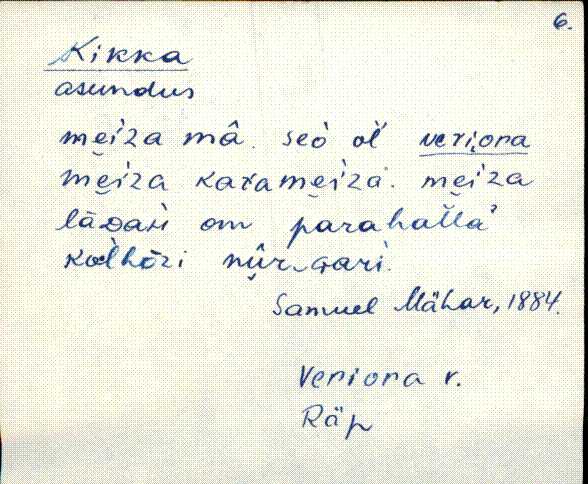 6.
Kikka
asundus
mẹiza mâ. seò oľľ veri̮ora
mẹiza karamẹiza. mẹiza
lādaɢi om parahaĺĺa'
kolhōzi nụ̂r-ɢari.
Samuel Mähar, 1884.
Veriora v.
Räp